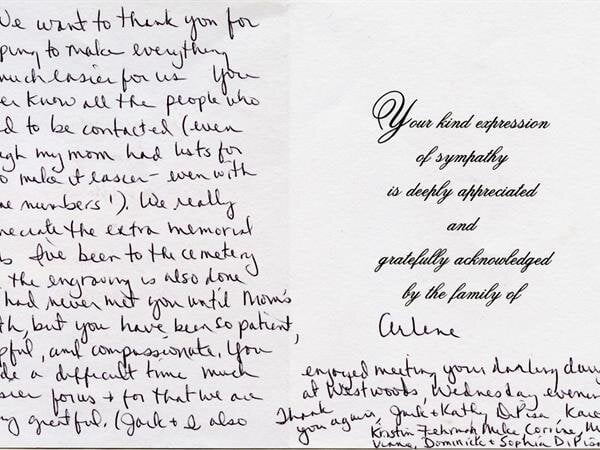 We want to thank you for
ping to make everything
much easier for us You
er know all the people who
d to be contacted (even
ugh my mom had lists for
o make it easier - even with
ne numbers!). We really
reciate the extra memorial
s I've been to the cemetery
the engraving is also done
had never met you until Mom's
th, but you have been so patient,
pful, and compassionate. You
de a difficult time much
sier for us + for that we are
ry greatful. (Jack + I also
Your kind expression
of sympathy
is deeply appreciated
and
gratefully acknowledged
by the family of
Arlene
enjoyed meeting your darling daug
at Westwoods, Wednesday evening
Thank
you again, Jack + Kathy DiPisa,
Kristin Fehrman, Mike, Corrine,
Dominick + Sophia DiPisa